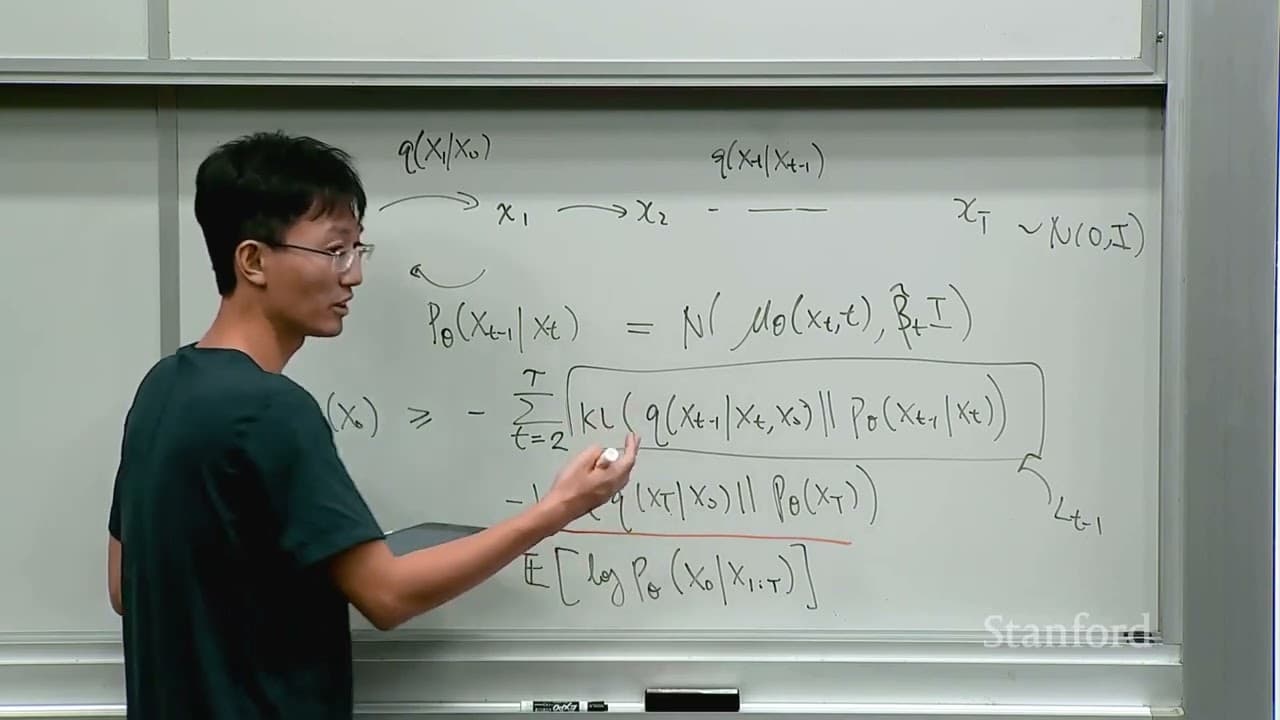 q(x₁|x₀) q(xt|xt-1)
x₁ → x₂ - — xT ~ N(0,I)
Pθ(xt-1|xt) = N( μθ(xt,t), β̂t I)
(x₀) ≥ - ∑ᵀt=2 KL( q(xt-1|xt,x₀) || Pθ(xt-1|xt))
q(xT|x₀) || Pθ(xT))
Lt-1
E[log Pθ(x₀|x1:T)]
Stanford
EXPO